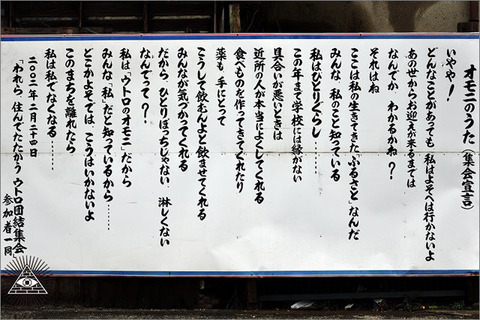 オモニのうた（集会宣言）
いやや！
どんなことがあっても 私はよそへは行かないよ
あの世からお迎えが来るまでは
なんでか わかるかね？
それはね
ここは私の生きてきた「ふるさと」なんだ
みんな 私のこと知っている
私はひとりぐらし……
この年まで学校には縁がない
具合いが悪いときは
近所の人が本当によくしてくれる
食べものを作ってきてくれたり
薬も 手にとって
こうして飲むんよと飲ませてくれる
みんなが気づかってくれる
だから ひとりぼっちじゃない 淋しくない
なんでって？
私は「ウトロのオモニ」だから
みんな「私」だと知っているから……
どこかよそでは こうはいかないよ
このまちを離れたら
私は私でなくなる……
二〇〇二年二月二十四日
「われら、住んでたたがう」ウトロ団結集会
参加者一同